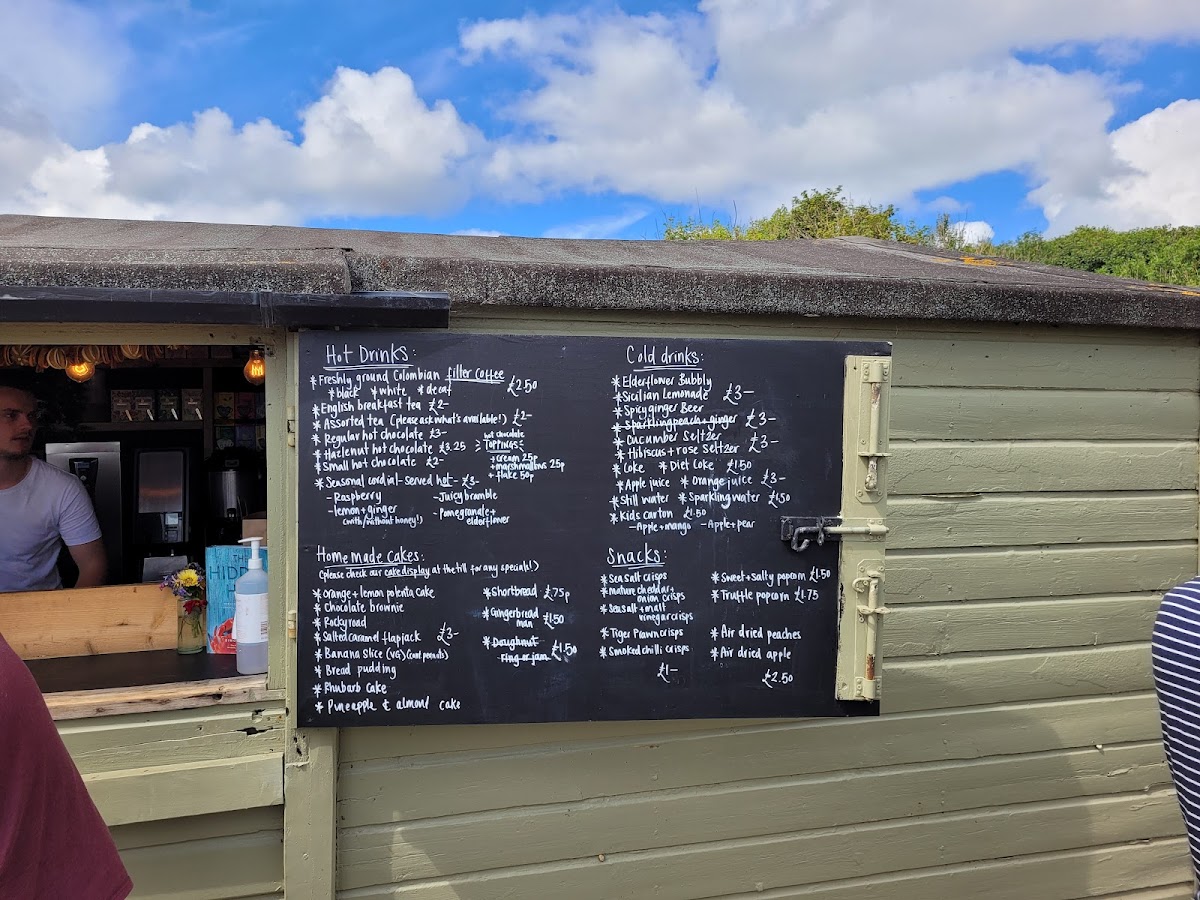 Hot Drinks:
*Freshly ground Colombian filter coffee £2.50
*black *white *decaf
*English breakfast tea £2-
*Assorted tea (please ask what's available!) £2-
*Regular hot chocolate £3-
*Hazlenut hot chocolate £3.25
*Small hot chocolate £2-
hot chocolate
TOPPINGS
+cream 25p
+marshmallows 25p
+flake 50p
*Seasonal cordial-served hot- £3-
-Raspberry
-Juicy bramble
-lemon+ginger
(with/without honey!)
-Pomegranate+
elderflower
Home made Cakes:
(please check our cake display at the till for any specials!)
*orange+lemon polenta cake
*Chocolate brownie
*Rocky road
*Salted caramel flapjack £3-
*Banana Slice (VG)(cont peanuts)
*Bread pudding
*Rhubarb cake
*Pineapple & almond cake
*Shortbread £.75p
*Gingerbread
man £1.50
*Doughnut
ring or jam £1.50
Cold drinks:
*Elderflower Bubbly
*Sicilian Lemonade £3-
*Spicy ginger Beer
*Sparkling peach+ginger £3-
*Cucumber Seltzer
*Hibiscus+rose Seltzer £3-
*Coke *Diet Coke £1.50
*Apple juice *Orange juice £3-
*Still water *Sparkling water £1.50
*Kids carton £1.50
-Apple+mango -Apple+pear
Snacks:
*Sea Salt crisps
*mature cheddar+
onion crisps
*Sea salt+malt
vinegar crisps
*Tiger Prawn crisps
*Smoked chilli crisps
£1-
*Sweet+salty popcorn £1.50
*Truffle popcorn £1.75
*Air dried peaches
*Air dried apple
£2.50
THE
HIDD